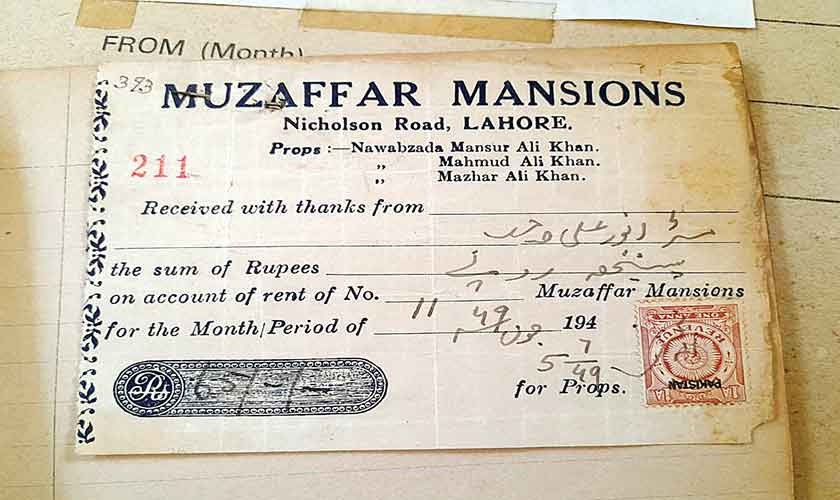 FROM (Month)
393
MUZAFFAR MANSIONS
Nicholson Road, LAHORE.
Props :—Nawabzada Mansur Ali Khan.
„ Mahmud Ali Khan.
„ Mazhar Ali Khan.
211
Received with thanks from
مسٹر انور علی صاحب
the sum of Rupees پینسٹھ روپے
on account of rent of No. 11 Muzaffar Mansions
for the Month/Period of جون 49 194
5/7/49
Rs 65/-/-
for Props.
ONE ANNA
REVENUE
PAKISTAN
1A 1A